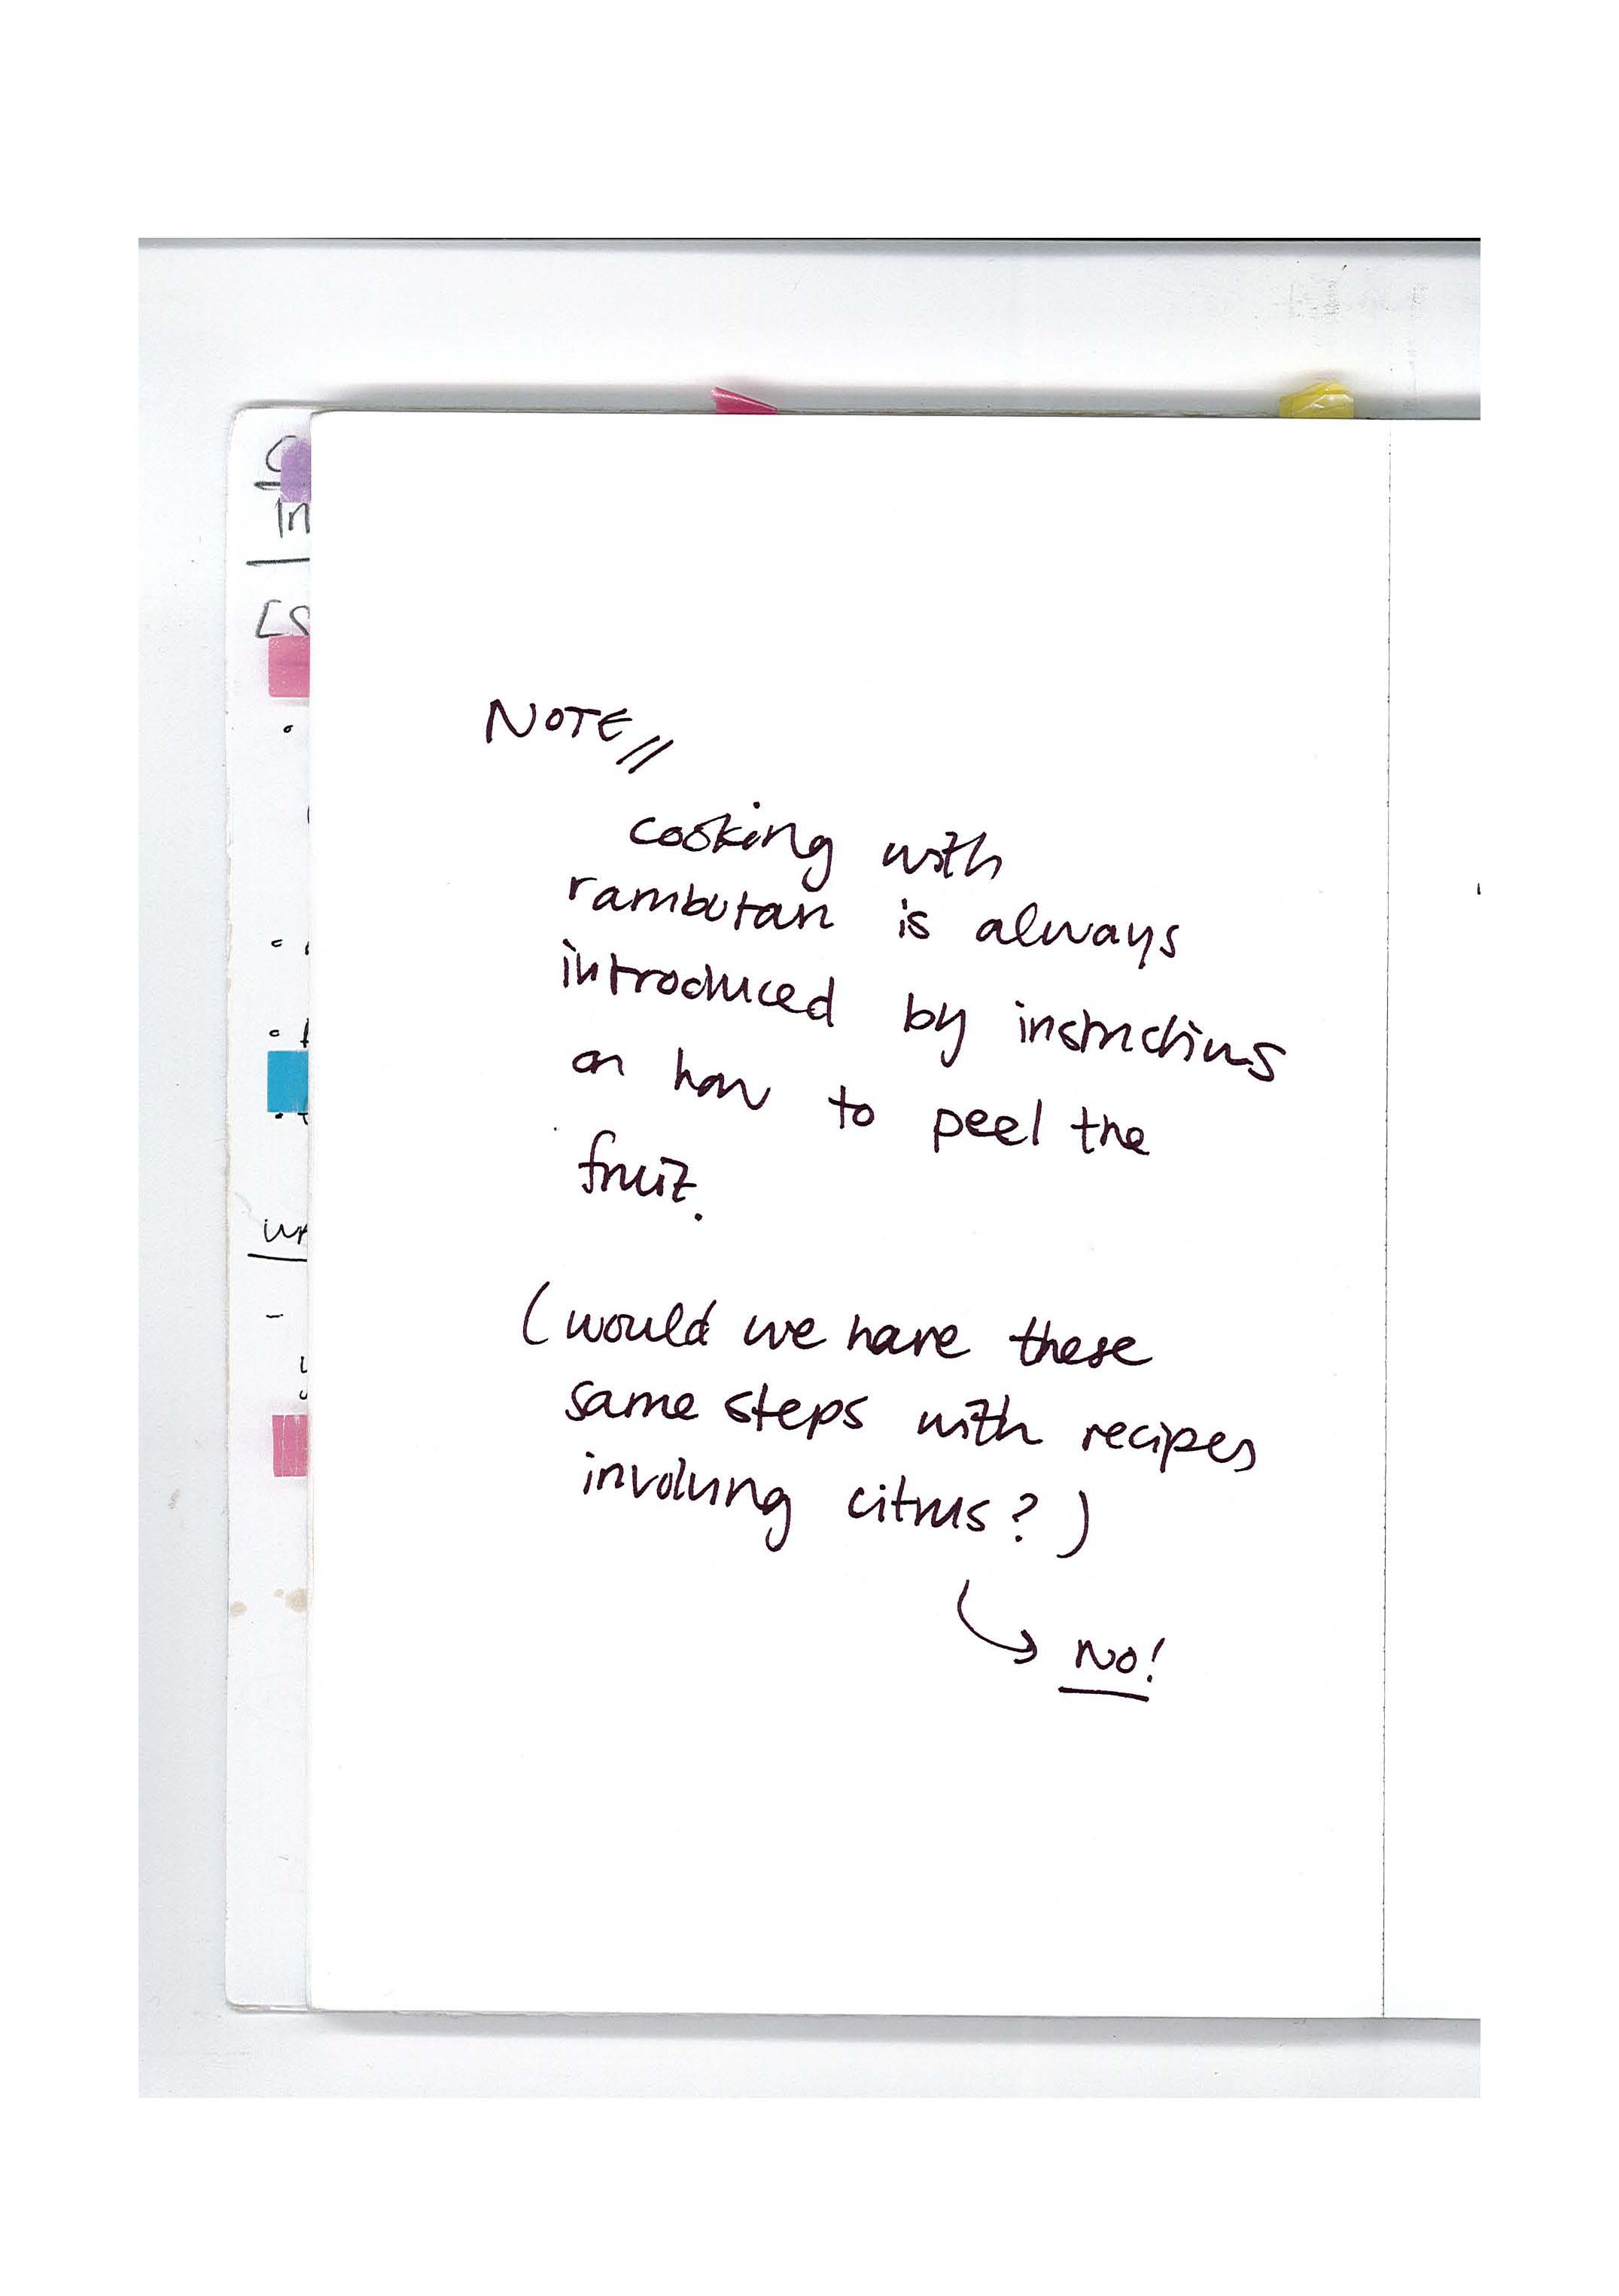 NOTE//
cooking with
rambutan is always
introduced by instructions
on how to peel the
fruit.
(would we have these
same steps with recipes
involving citrus?)
→ NO!
In